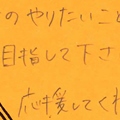 のやりたいこと
目指して下さ
応援してくれ